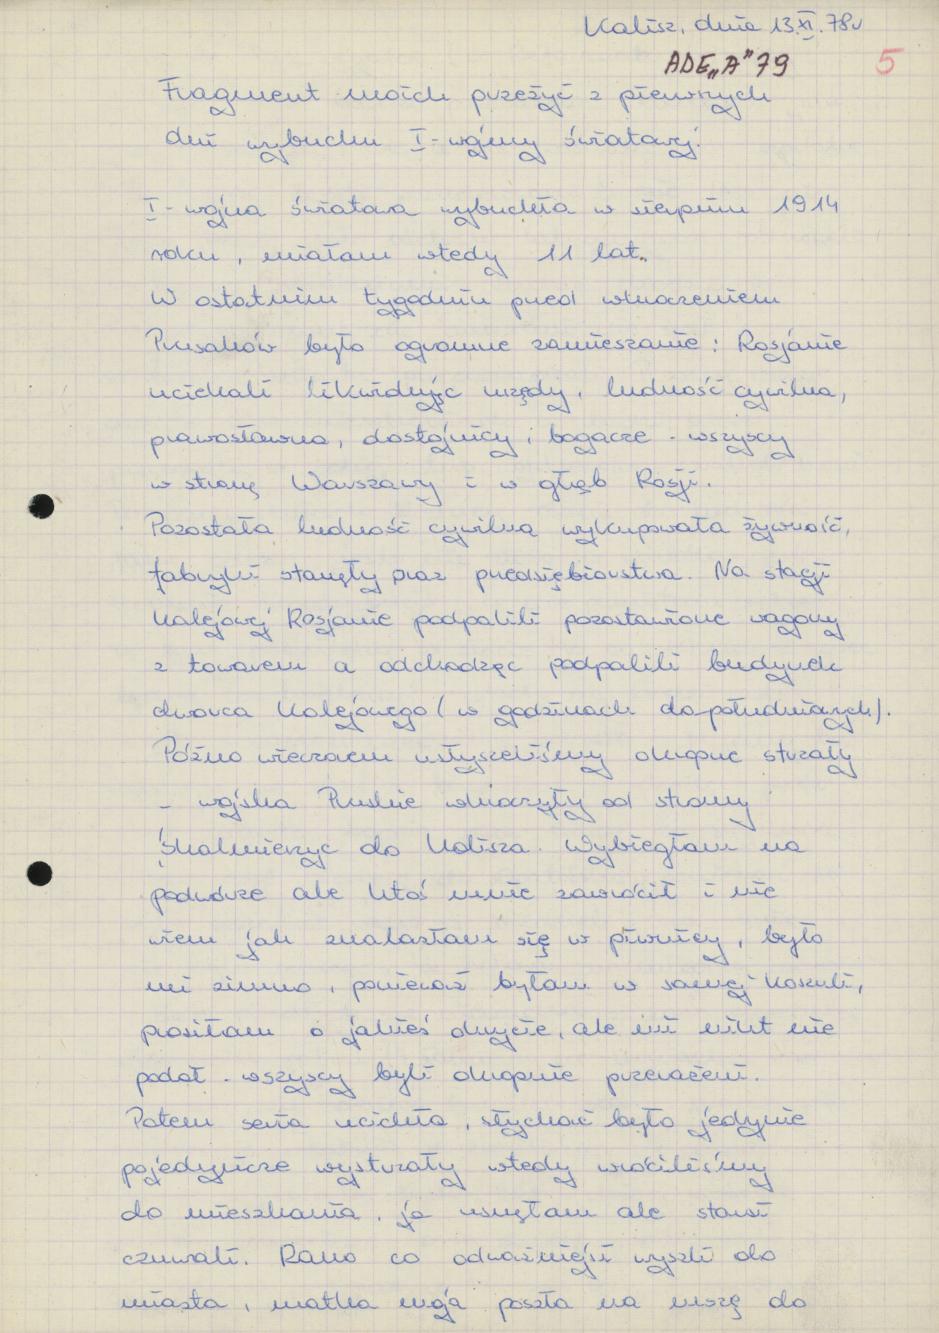 Kalisz, dnia 13.XI.78r
ADE„A"79
5
Fragment moich przeżyć z pierwszych
dni wybuchu I-wojny światowej.
I-wojna światowa wybuchła w sierpniu 1914
roku, miałam wtedy 11 lat.
W ostatnim tygodniu przed wkroczeniem
Prusaków było ogromne zamieszanie: Rosjanie
uciekali likwidując urzędy, ludność cywilna,
prawosławna, dostojnicy i bogacze - wszyscy
w stronę Warszawy i w głąb Rosji.
Pozostała ludność cywilna wykupowała żywność,
fabryki stanęły oraz przedsiębiorstwa. Na stacji
kolejowej Rosjanie podpalili pozostawione wagony
z towarem a odchodząc podpalili budynek
dworca kolejowego (w godzinach dopołudniowych).
Późno wieczorem usłyszeliśmy okropne strzały
- wojska Pruskie wkroczyły od strony
Skalmierzyc do Kalisza. Wybiegłam na
podwórze ale ktoś mnie zawrócił i nie
wiem jak znalazłam się w piwnicy, było
mi zimno, ponieważ byłam w samej koszuli,
prosiłam o jakieś okrycie, ale mi nikt nie
podał - wszyscy byli okropnie przerażeni.
Potem seria ucichła, słychać było jedynie
pojedyńcze wystrzały wtedy wróciliśmy
do mieszkania, ja usnęłam ale starsi
czuwali. Rano co odważniejsi wyszli do
miasta, matka moja poszła na mszę do